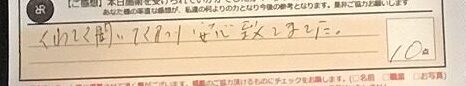 【ご感想】本日施術を受けられていかがでした
あなた様の率直な感想が、私達の何よりの力となり今後の参考となります。是非ご協力お願いします
くわしく聞いてくれて 安心致しました。
10点
掲載のご協力頂けるものにチェックをお願いします。(□名前 □職業 □お写真)